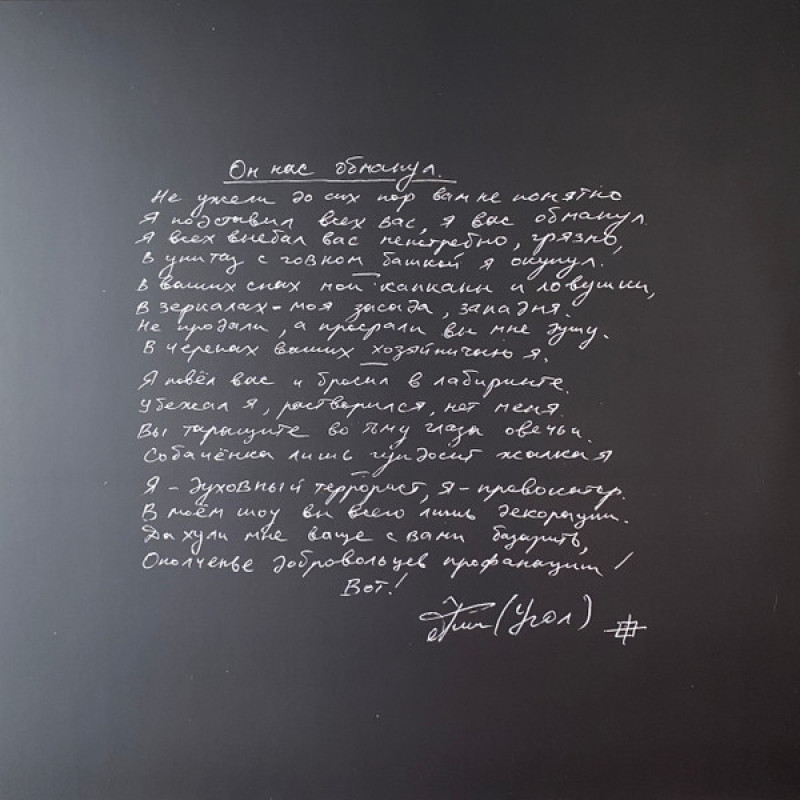 Он нас обманул.
Не ужели до сих пор вам не понятно
Я подставил всех вас, я вас обманул.
Я всех выебал вас непотребно, грязно,
В унитаз с говном башкой я окунул.
В ваших снах мои капканы и ловушки,
В зеркалах - моя засада, западня.
Не продали, а просрали вы мне душу.
В черепах ваших хозяйничаю я.
Я повёл вас и бросил в лабиринте.
Убежал я, растворился, нет меня.
Вы таращите во тьму глаза овечьи.
Собачёнка лишь гундосит жалкая
Я - духовный террорист, я - провокатор.
В моём шоу вы всего лишь декорации.
Да хули мне ваще с вами базарить,
Ополченье добровольцев профанации!
Вот!
(Угол)